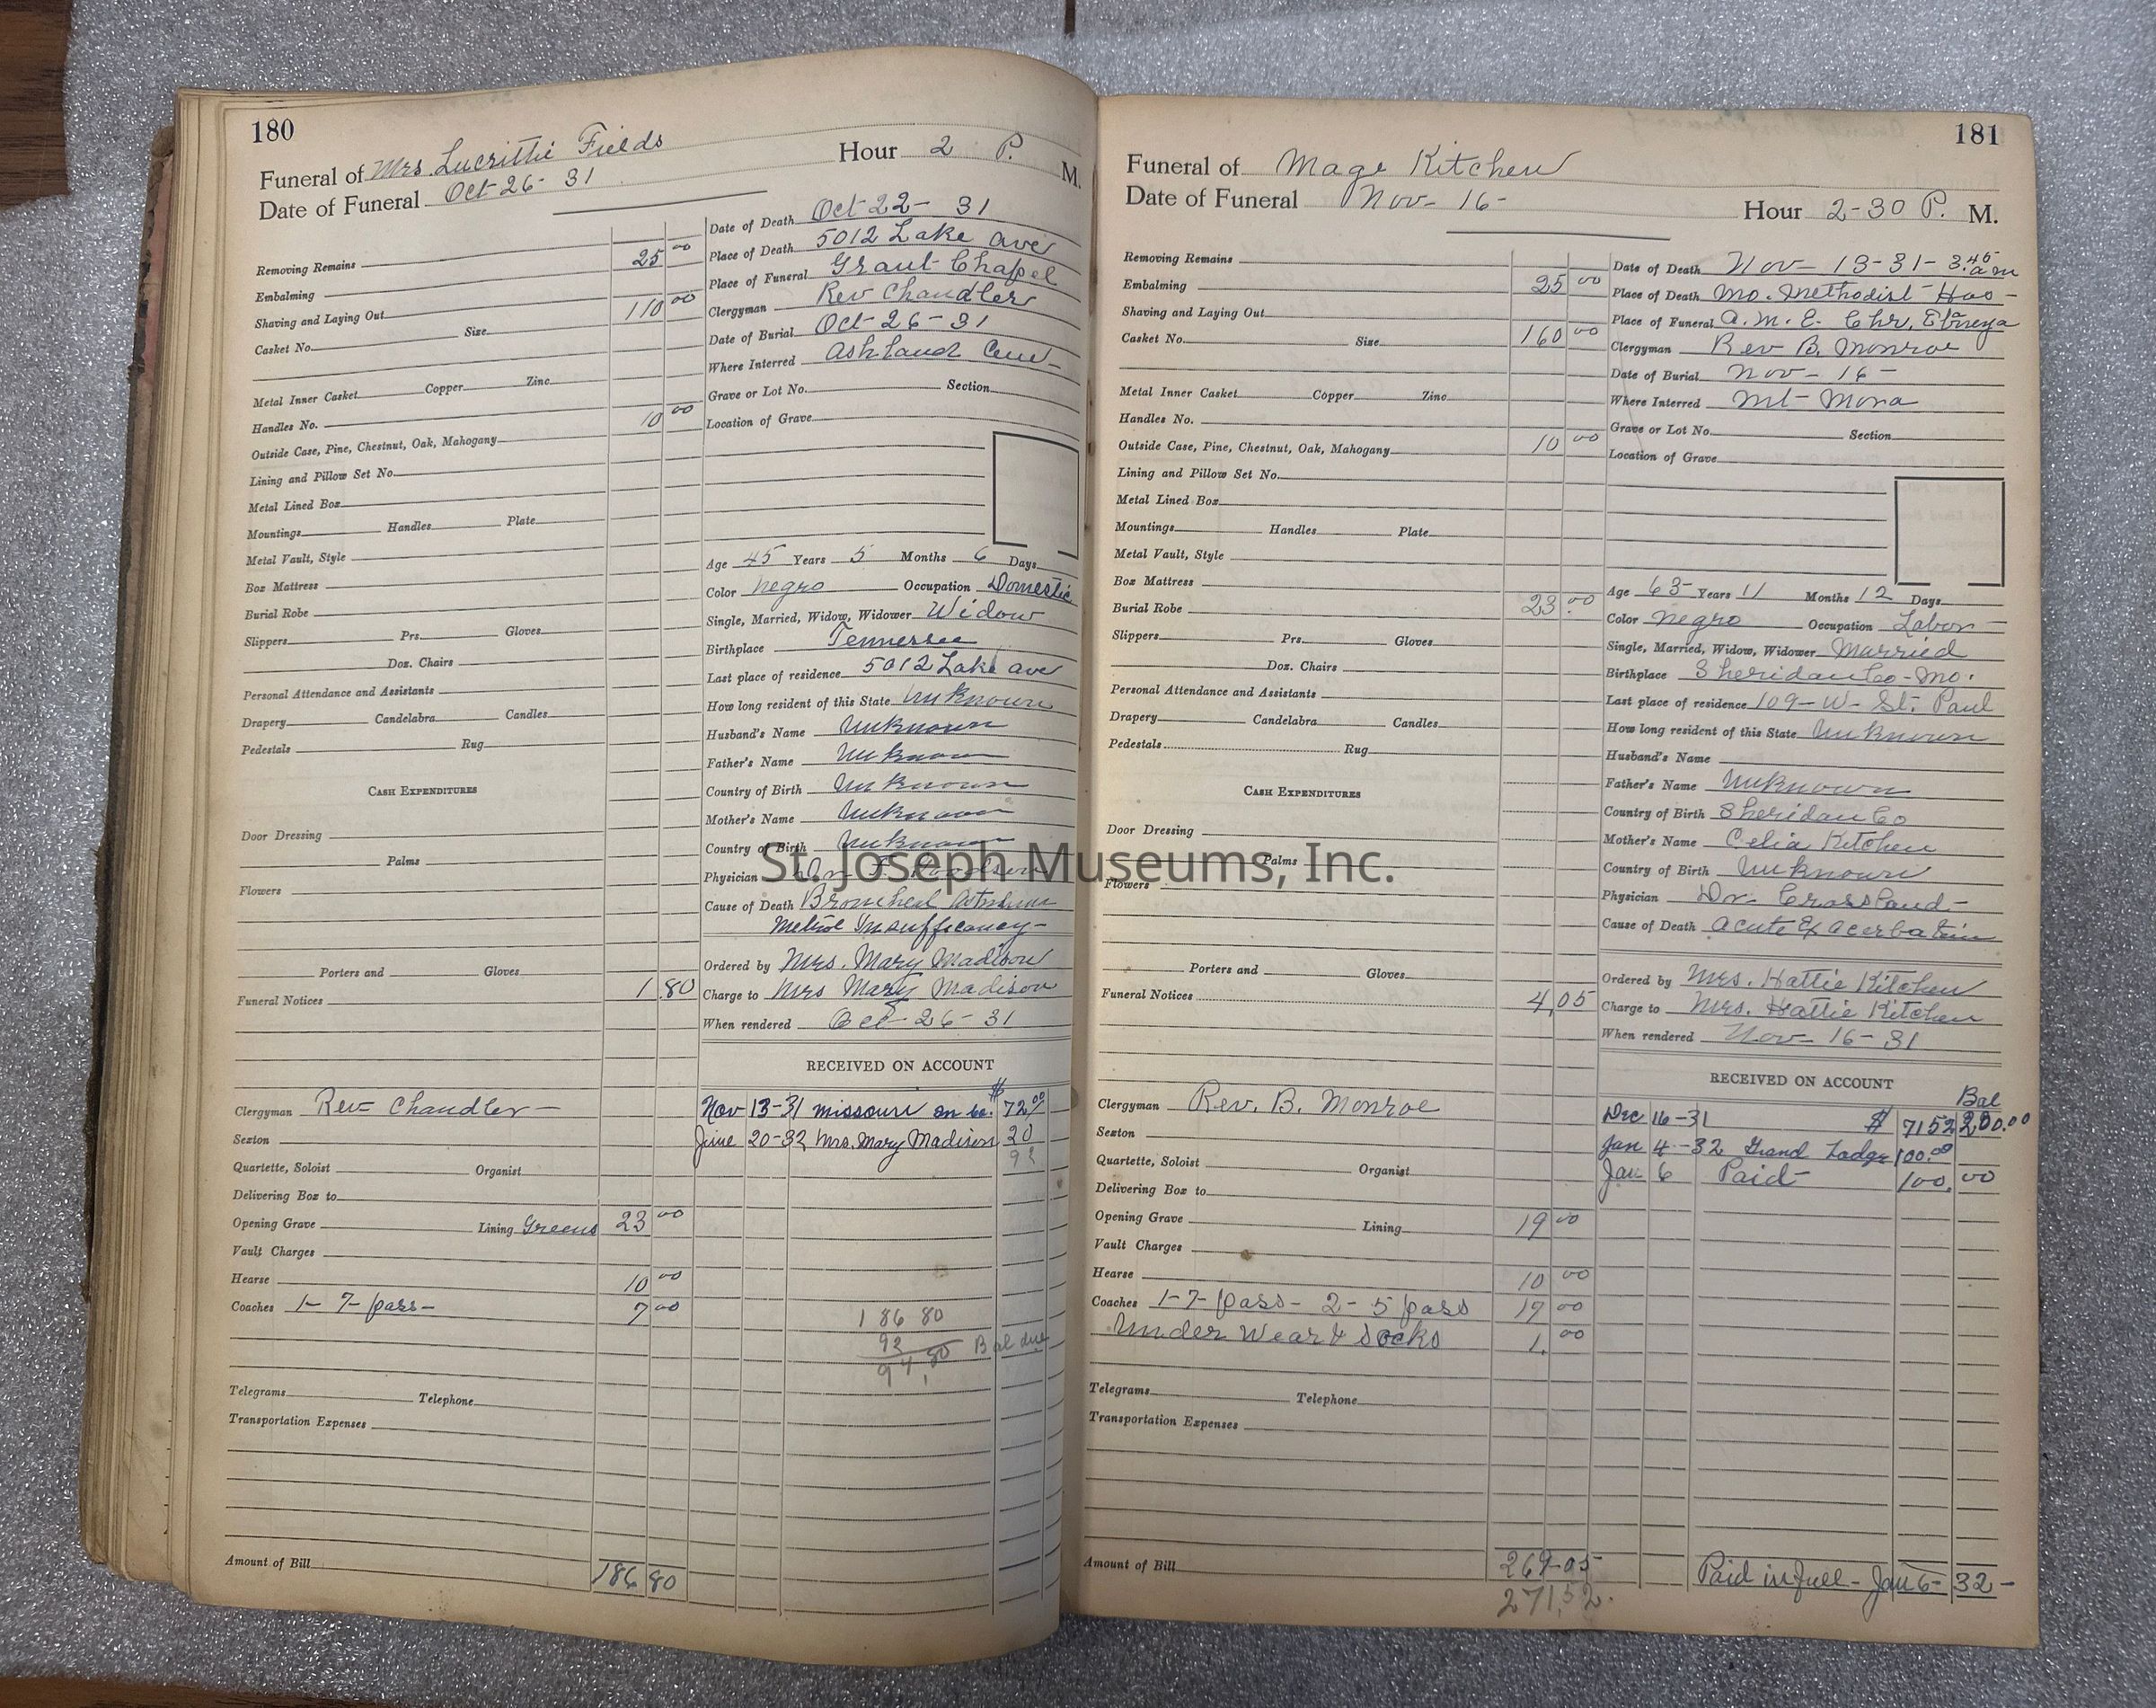 180
Funeral of Mrs. Lucrithie Fields
Hour 2 P. M.
Date of Funeral Oct 26 - 31
Removing Remains
Embalming 25 00
Shaving and Laying Out
Casket No. Size 110 00
Metal Inner Casket Copper Zinc
Handles No.
Outside Case, Pine, Chestnut, Oak, Mahogany 10 00
Lining and Pillow Set No.
Metal Lined Box
Mountings Handles Plate
Metal Vault, Style
Box Mattress
Burial Robe
Slippers Prs. Gloves
Doz. Chairs
Personal Attendance and Assistants
Drapery Candelabra Candles
Pedestals Rug
CASH EXPENDITURES
Door Dressing
Palms
Flowers
Porters and Gloves
Funeral Notices 1 80
Clergyman Rev Chandler
Sexton
Quartette, Soloist Organist
Delivering Box to
Opening Grave Lining Greens 23 00
Vault Charges
Hearse 10 00
Coaches 1 - 7 - pass - 7 00
Telegrams Telephone
Transportation Expenses
Amount of Bill 186 80
Date of Death Oct 22 - 31
Place of Death 5012 Lake ave
Place of Funeral Grant Chapel
Clergyman Rev Chandler
Date of Burial Oct - 26 - 31
Where Interred Ashland Cem -
Grave or Lot No. Section
Location of Grave
Age 45 Years 5 Months 6 Days
Color negro Occupation Domestic
Single, Married, Widow, Widower Widow
Birthplace Tennersee
Last place of residence 5012 Lake ave
How long resident of this State unknown
Husband's Name unknown
Father's Name unknown
Country of Birth unknown
Mother's Name unknown
Country of Birth unknown
Physician
Cause of Death Broncheal
Insufficancy -
Ordered by Mrs. Mary Madison
Charge to Mrs Mary Madison
When rendered Oct - 26 - 31
RECEIVED ON ACCOUNT
Nov 13-31 missouri in co. $ 72 00
June 20-32 Mrs. Mary Madison 20
92
186 80
92
94 80 Bal due
181
Funeral of Mage Kitchen
Date of Funeral Nov - 16 -
Hour 2-30 P. M.
Removing Remains
Embalming 25 00
Shaving and Laying Out
Casket No. Size 160 00
Metal Inner Casket Copper Zinc
Handles No.
Outside Case, Pine, Chestnut, Oak, Mahogany 10 00
Lining and Pillow Set No.
Metal Lined Box
Mountings Handles Plate
Metal Vault, Style
Box Mattress
Burial Robe 23 00
Slippers Prs. Gloves
Doz. Chairs
Personal Attendance and Assistants
Drapery Candelabra Candles
Pedestals Rug
CASH EXPENDITURES
Door Dressing
Palms
Flowers
Porters and Gloves
Funeral Notices 4 05
Clergyman Rev. B. Monroe
Sexton
Quartette, Soloist Organist
Delivering Box to
Opening Grave Lining 19 00
Vault Charges
Hearse 10 00
Coaches 1-7-pass - 2 - 5 pass 17 00
Under Wear & Socks 1. 00
Telegrams Telephone
Transportation Expenses
Amount of Bill 269-05
271,52.
Date of Death Nov - 13 - 31 - 3:45 am
Place of Death Mo. Methodist Hos -
Place of Funeral A. M. E. Chr.
Clergyman Rev B. Monroe
Date of Burial Nov - 16 -
Where Interred Mt - Mora
Grave or Lot No. Section
Location of Grave
Age 63 Years 11 Months 12 Days
Color negro Occupation Labor
Single, Married, Widow, Widower Married
Birthplace Sheridan Co - Mo.
Last place of residence 109 - W - St. Paul
How long resident of this State unknown
Husband's Name
Father's Name unknown
Country of Birth Sheridan Co
Mother's Name Celia Kitchen
Country of Birth unknown
Physician Dr. Crossland -
Cause of Death acute Exacerbation
Ordered by Mrs. Hattie Kitchen
Charge to Mrs. Hattie Kitchen
When rendered Nov - 16 - 31
RECEIVED ON ACCOUNT
Bal
Dec 16 - 31 $ 71 52 200.00
Jan 4 - 32 Grand Lodge 100.00
Jan 6 Paid - 100. 00
Paid in full - Jan 6 - 32 -
St. Joseph Museums, Inc.